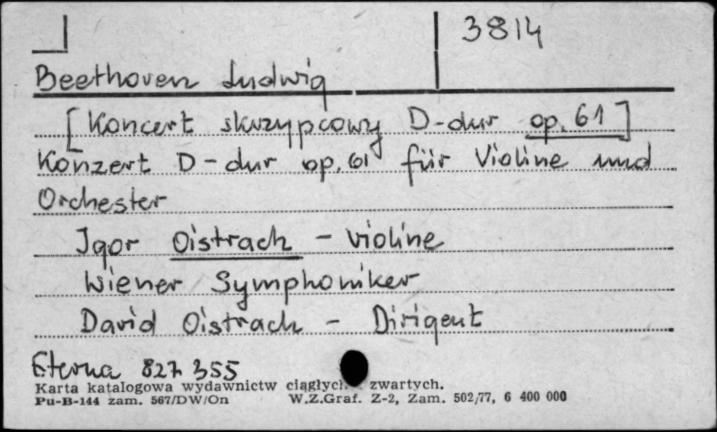 3814
Beethoven Ludwig
[Koncert skrzypcowy D-dur op. 61]
Konzert D-dur op. 61 für Violine und
Orchester
Igor Oistrach - violine
Wiener Symphoniker
David Oistrach - Dirigent
Eterna 827 355
Karta katalogowa wydawnictw ciągłych zwartych.
Pu-B-144 zam. 567/DW/On W.Z.Graf. Z-2, Zam. 502/77, 6 400 000